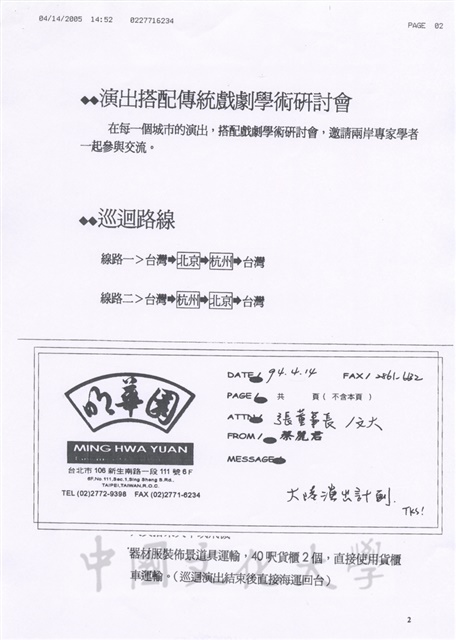 04/14/2005 14:52 0227716234 PAGE 02
◆◆演出搭配傳統戲劇學術研討會
在每一個城市的演出，搭配戲劇學術研討會，邀請兩岸專家學者
一起參與交流。
◆◆巡迴路線
線路一＞台灣➡北京➡杭州➡台灣
線路二＞台灣➡杭州➡北京➡台灣
明華園
MING HWA YUAN
台北市 106 新生南路一段 111 號 6 F
6F,No 111,Sec.1,Sing Sheng S.Rd.,
TAIPEI,TAIWAN,R.O.C.
TEL (02)2772-9398 FAX (02)2771-6234
DATE/ 94.4.14 FAX/ 2861-
PAGE 共 頁 ( 不含本頁 )
ATTN/ 張董事長 /文大
FROM/ 蔡麗君
MESSAGE
大陸演出計劃.
TKS!
器材服裝佈景道具運輸，40 呎貨櫃 2 個，直接使用貨櫃
車運輸。（巡迴演出結束後直接海運回台）
中國文化大學
2